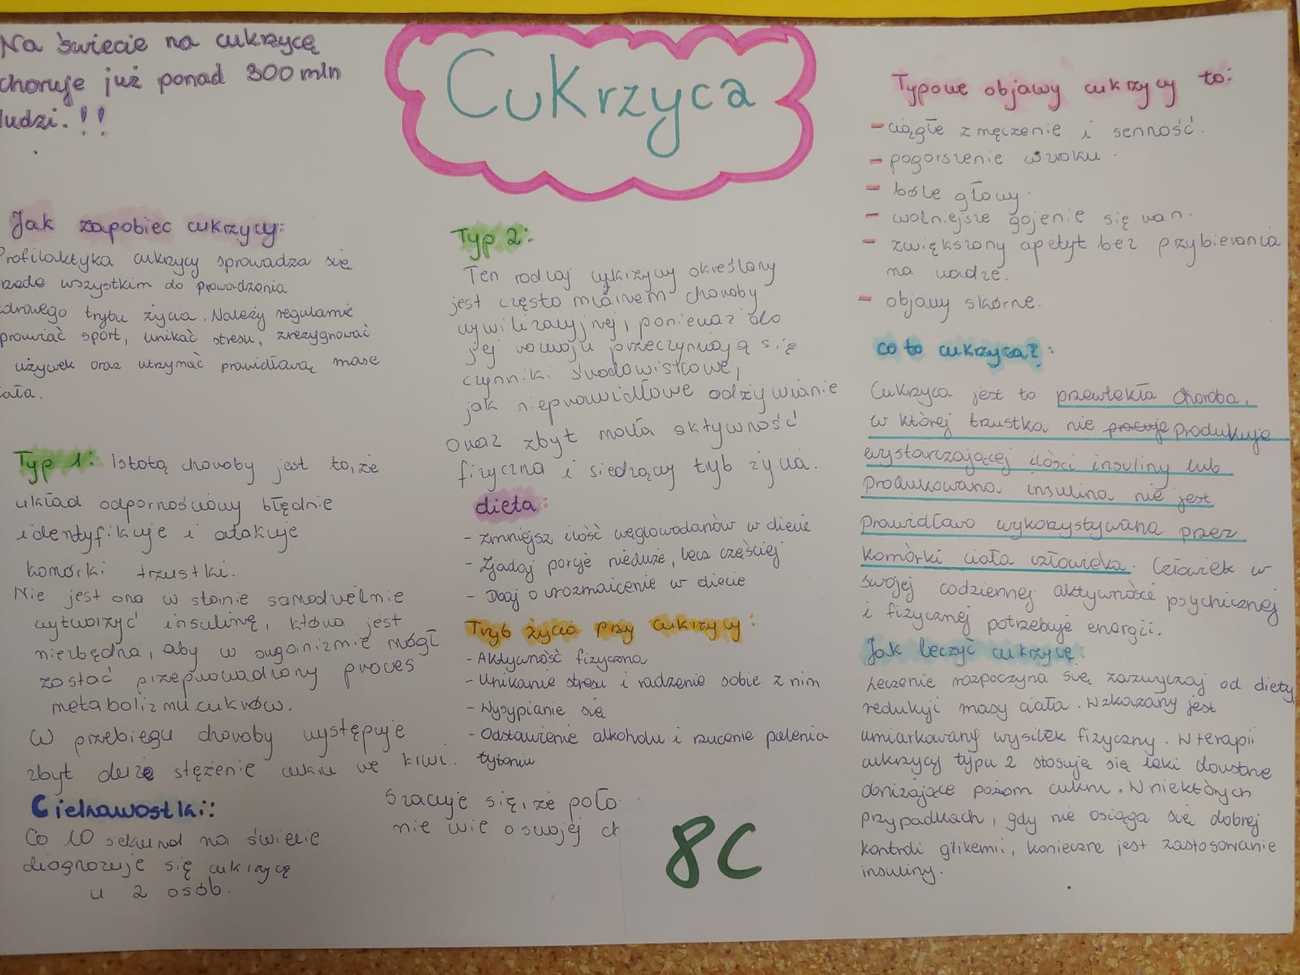 Na świecie na cukrzycę
choruje już ponad 300 mln
ludzi.!!
Cukrzyca
Jak zapobiec cukrzycy:
Profilaktyka cukrzycy sprowadza się
przede wszystkim do prowadzenia
zdrowego trybu życia. Należy regularnie
uprawiać sport, unikać stresu, zrezygnować
używek oraz utrzymać prawidłową masę
ciała.
Typ 1: Istotą choroby jest to, że
układ odpornościowy błędnie
identyfikuje i atakuje
komórki trzustki.
Nie jest ona w stanie samodzielnie
wytworzyć insulinę, która jest
niezbędna, aby w organizmie mógł
zostać przeprowadzony proces
metabolizmu cukrów.
W przebiegu choroby występuje
zbyt duże stężenie cukru we krwi.
Ciekawostki:
Co 10 sekund na świecie
diagnozuje się cukrzycę
u 2 osób.
Typ 2:
Ten rodzaj cukrzycy określany
jest często mianem choroby
cywilizacyjnej, ponieważ do
jej rozwoju przyczyniają się
czynniki środowiskowe,
jak nieprawidłowe odżywianie
oraz zbyt mała aktywność
fizyczna i siedzący tyb życia.
dieta:
- zmniejsz ilość węglowodanów w diecie
- Zjadaj porcje nieduże, lecz częściej
- Dbaj o urozmaicenie w diecie
Tryb życia przy cukrzycy:
- Aktywność fizyczna
- Unikanie stresu i radzenie sobie z nim
- Wysypianie się
- Odstawienie alkoholu i rzucenie palenia
tytoniu
Szacuje się, że poło
nie wie o swojej ch
8C
Typowe objawy cukrzycy to:
- ciągłe zmęczenie i senność.
- pogorszenie wzroku.
- bóle głowy.
- wolniejsze gojenie się ran.
- zwiększony apetyt bez przybierania
na wadze.
- objawy skórne.
co to cukrzyca?:
Cukrzyca jest to przewlekła choroba,
w której trzustka nie produkuje
wystarczającej ilości insuliny lub
produkowana insulina nie jest
prawidłowo wykorzystywana przez
komórki ciała człowieka. Człowiek w
swojej codziennej aktywności psychicznej
i fizycznej potrzebuje energii.
Jak leczyć cukrzycę:
Leczenie rozpoczyna się zazwyczaj od diety,
redukcji masy ciała. Wskazany jest
umiarkowany wysiłek fizyczny. W terapii
cukrzycy typu 2 stosuje się leki doustne
obniżające poziom cukru. W niektórych
przypadkach, gdy nie osiąga się dobrej
kontroli glikemii, konieczne jest zastosowanie
insuliny.